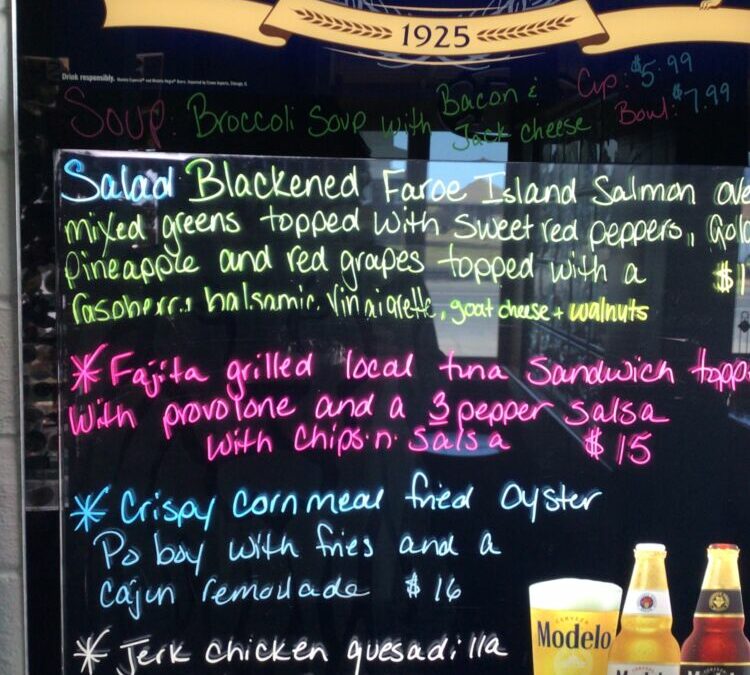 1925
Drink responsibly.
Soup: Broccoli Soup with Bacon &
Jack cheese
Cup: $5.99
Bowl: $7.99
Salad Blackened Faroe Island Salmon ove
mixed greens topped with sweet red peppers, Gold
pineapple and red grapes topped with a $1
raspberry balsamic vinaigrette, goat cheese + walnuts
* Fajita grilled local tuna Sandwich topp
with provolone and a 3 pepper salsa
with chips n salsa $15
* Crispy Cornmeal fried Oyster
Po boy with fries and a
cajun remoulade $16
* Jerk chicken quesadilla
CERVEZA
Modelo
Modelo